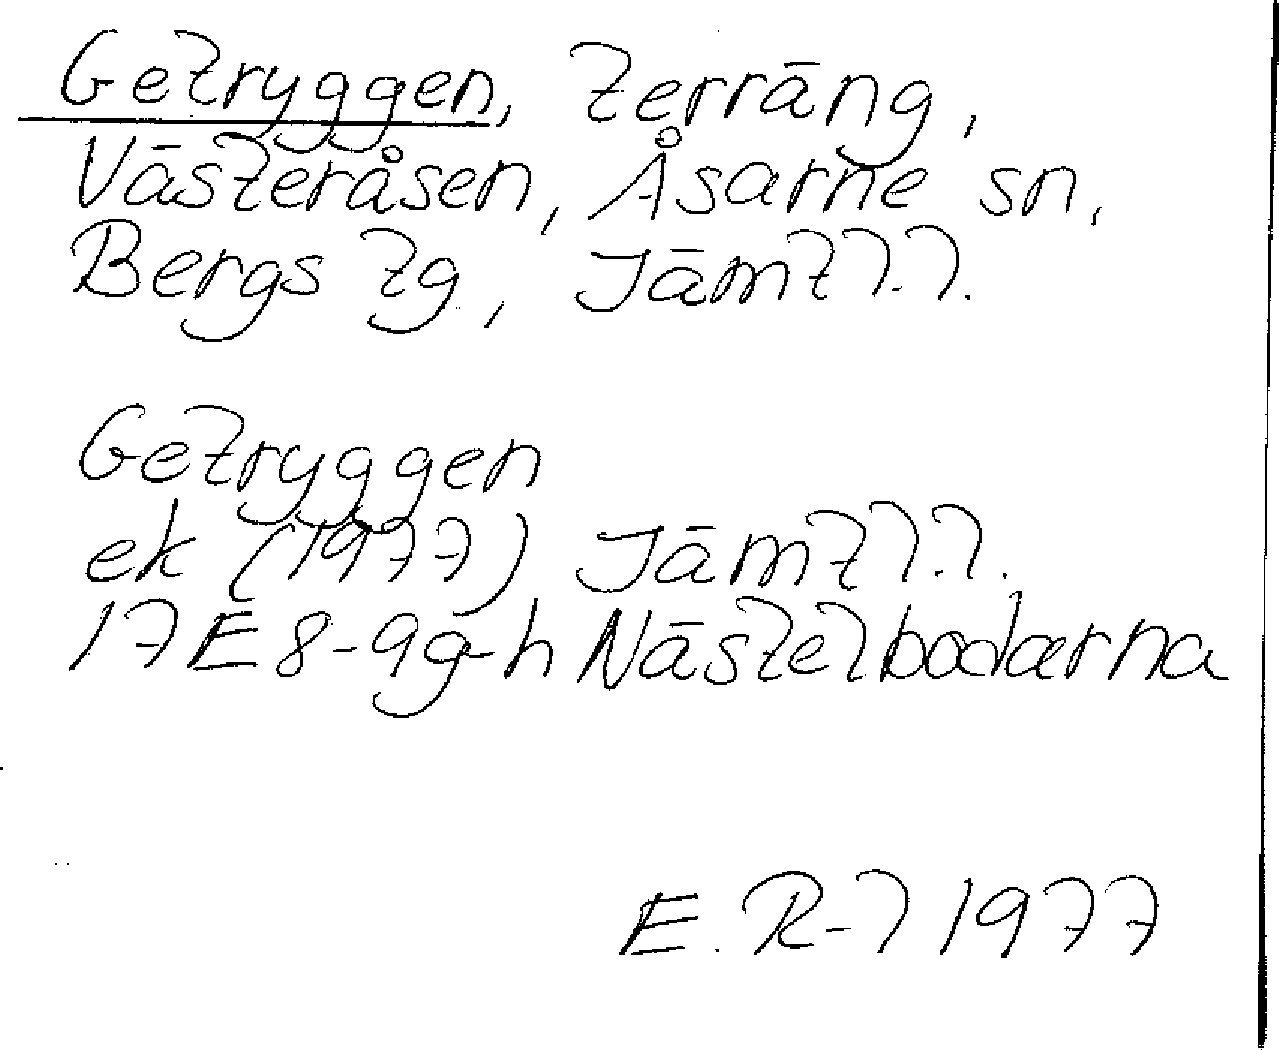 Getryggen, terräng,
Västeråsen, Åsarne sn,
Bergs tg, Jämtl.l.
Getryggen
ek (1977) Jämtl.l.
17E8-9g-h Nästelbodarna
E. R-l 1977